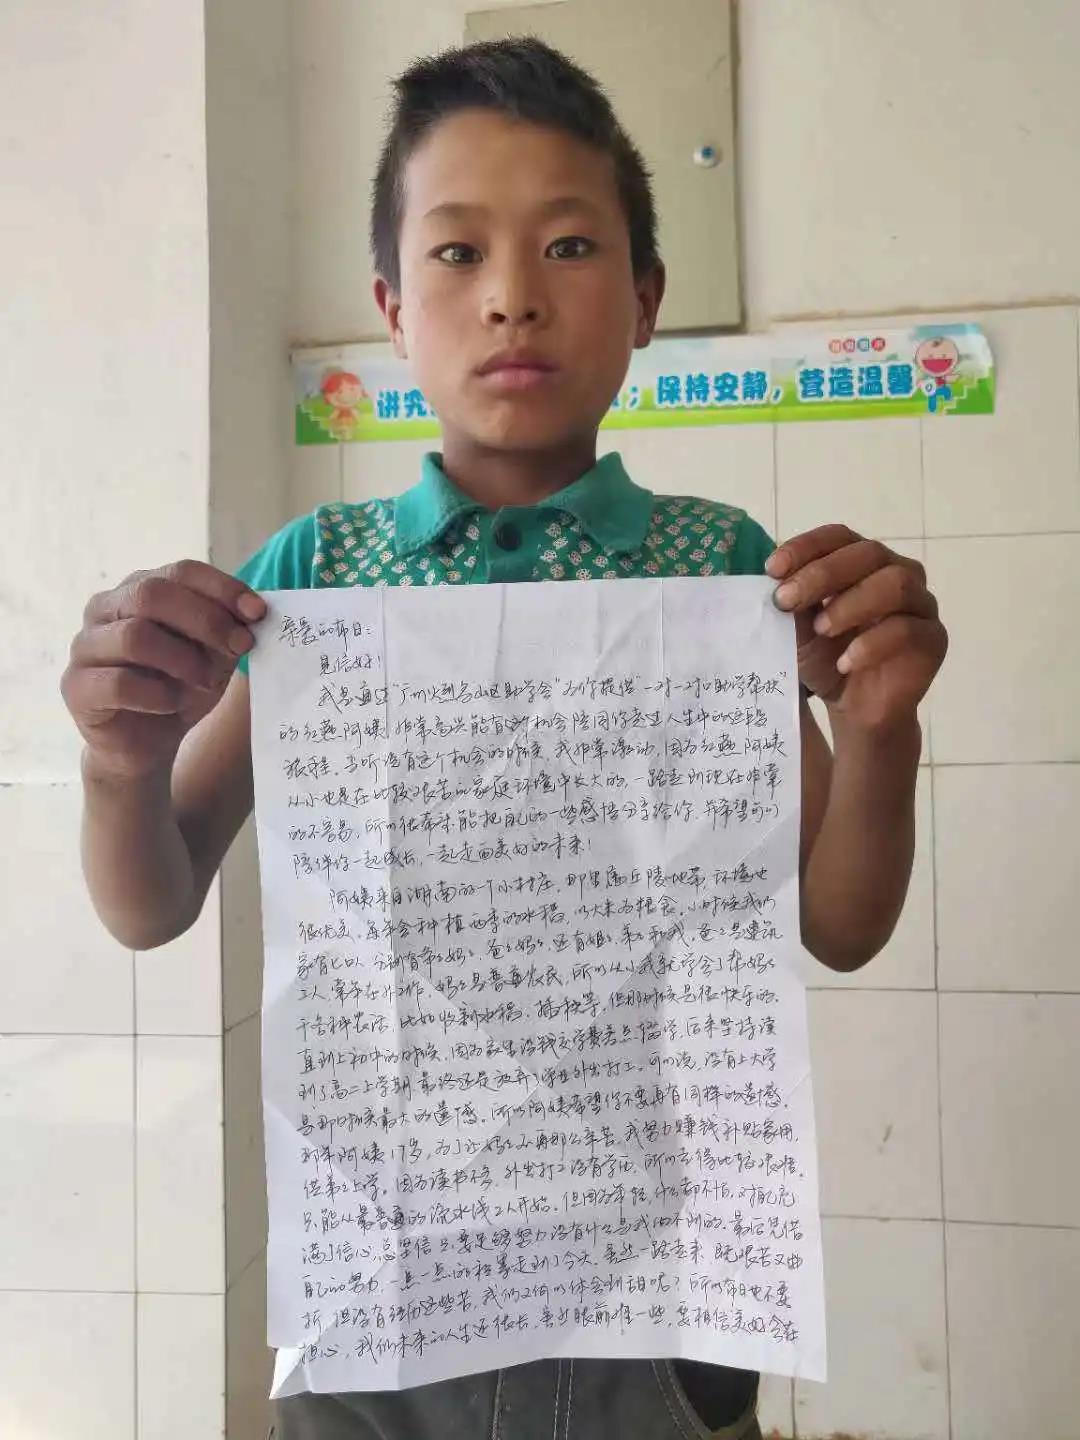 讲究
；保持安静，营造温馨
亲爱的布日：
见信好！
我是通过“广州火烈鸟山区助学会”为你提供“一对一对口助学帮扶”
的红燕阿姨，非常高兴能有这个机会陪同你走过人生中的这段
旅程。当听说有这个机会的时候，我非常激动，因为红燕阿姨
从小也是在比较艰苦的家庭环境中长大的，一路走到现在非常
的不容易，所以很希望能把自己的一些感悟分享给你，并希望可以
陪伴你一起成长，一起走向美好的未来！
阿姨来自湖南的一个小村庄，那里属丘陵地带，环境也
很优美，每年会种植两季的水稻，以大米为粮食。小时候我们
家有七口人，分别有爷爷奶奶、爸爸妈妈、还有姐姐、弟弟和我，爸爸是建筑
工人，常年在外工作，妈妈是普通农民，所以从小我就学会了帮妈妈
干各种农活，比如收割水稻、插秧等，但那时候是很快乐的。
直到上初中的时候，因为家里没钱交学费差点辍学，后来坚持读
到了高二上学期最终还是放弃了学业外出打工。可以说，没有上大学
是那时候最大的遗憾。所以阿姨希望你不要再有同样的遗憾。
那年阿姨17岁，为了让妈妈不再那么辛苦，我努力赚钱补贴家用，
供弟弟上学。因为读书不多，外出打工没有学历，所以走得比较艰难，
只能从最普通的流水线工人开始。但因为年轻，什么都不怕，对自己充
满了信心，总坚信只要足够努力没有什么是我做不到的。最后凭借
自己的努力，一点一点的积累走到了今天。虽然一路走来，既艰苦又曲
折，但没有经历这些苦，我们又何以体会到甜呢？所以布日也不要
担心，我们未来的人生还很长，虽然眼前难一些，要相信美好会在